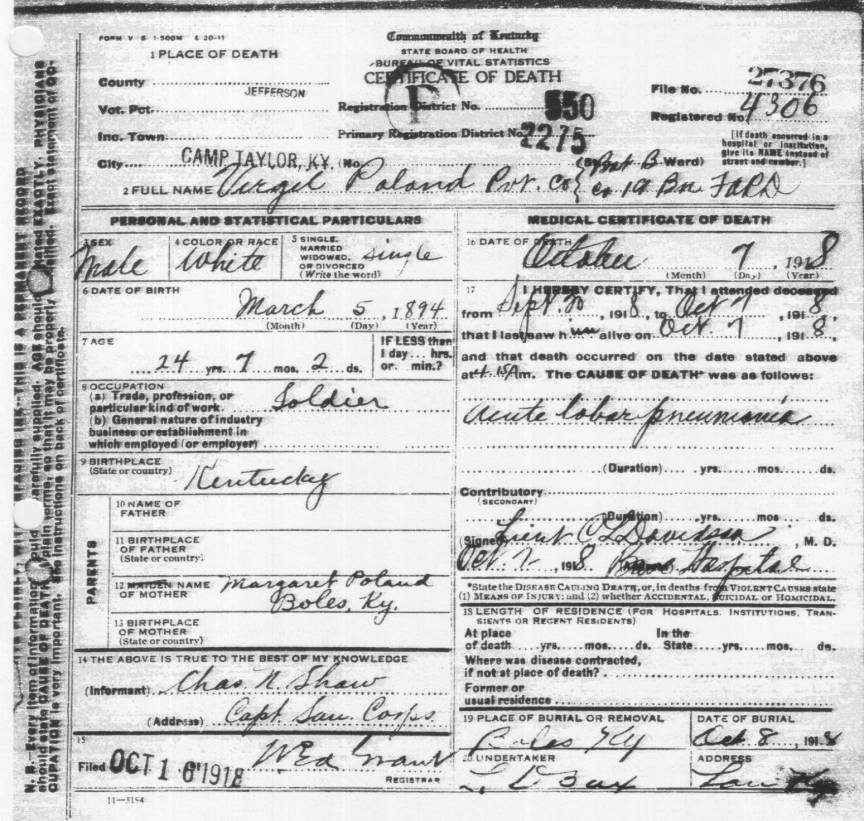 FORM V S 1-500M 6 20-11
Commonwealth of Kentucky
STATE BOARD OF HEALTH
BUREAU OF VITAL STATISTICS
CERTIFICATE OF DEATH
1 PLACE OF DEATH
County JEFFERSON
Vot. Pct.
Inc. Town
City CAMP TAYLOR, KY. (No.
P
Registration District No. 550
Primary Registration District No. 2275
File No. 27376
Registered No. 4306
[If death occurred in a hospital or institution, give its NAME instead of street and number.]
(St. Bat B Ward)
2 FULL NAME Virgil Poland Pvt. Co Bn FARD
PERSONAL AND STATISTICAL PARTICULARS
3 SEX
Male
4 COLOR OR RACE
White
5 SINGLE, MARRIED WIDOWED, OR DIVORCED (Write the word)
Single
6 DATE OF BIRTH
March 5, 1894
(Month) (Day) (Year)
7 AGE
24 yrs. 7 mos. 2 ds.
IF LESS than 1 day... hrs. or min.?
8 OCCUPATION
(a) Trade, profession, or particular kind of work Soldier
(b) General nature of industry business or establishment in which employed (or employer)
9 BIRTHPLACE
(State or country)
Kentucky
PARENTS
10 NAME OF FATHER
11 BIRTHPLACE OF FATHER
(State or country)
12 MAIDEN NAME OF MOTHER Margaret Poland
Boles, Ky.
13 BIRTHPLACE OF MOTHER
(State or country)
14 THE ABOVE IS TRUE TO THE BEST OF MY KNOWLEDGE
(Informant) Chas N. Shaw
(Address) Capt San. Corps.
15
Filed OCT 16 1918 W Ed Grant
REGISTRAR
11-3154
MEDICAL CERTIFICATE OF DEATH
16 DATE OF DEATH
October 7 1918
(Month) (Day) (Year)
17 I HEREBY CERTIFY, That I attended deceased
from Sept. 20, 1918, to Oct 7, 1918,
that I last saw him alive on Oct 7, 1918,
and that death occurred on the date stated above
at m. The CAUSE OF DEATH* was as follows:
Acute lobar pneumonia
(Duration) yrs. mos. ds.
Contributory
(SECONDARY)
(Duration) yrs. mos ds.
(Signed) Lieut C L Davidson, M. D.
Oct 7, 1918 Base Hospital
*State the DISEASE CAUSING DEATH, or, in deaths from VIOLENT CAUSES state
(1) MEANS OF INJURY; and (2) whether ACCIDENTAL, SUICIDAL or HOMICIDAL.
18 LENGTH OF RESIDENCE (FOR HOSPITALS, INSTITUTIONS, TRANSIENTS OR RECENT RESIDENTS)
At place of death yrs. mos. ds. In the State yrs. mos. ds.
Where was disease contracted, if not at place of death?
Former or usual residence
19 PLACE OF BURIAL OR REMOVAL
Boles Ky
DATE OF BURIAL
Oct 8, 1918
20 UNDERTAKER
L D Bax
ADDRESS
Lou Ky